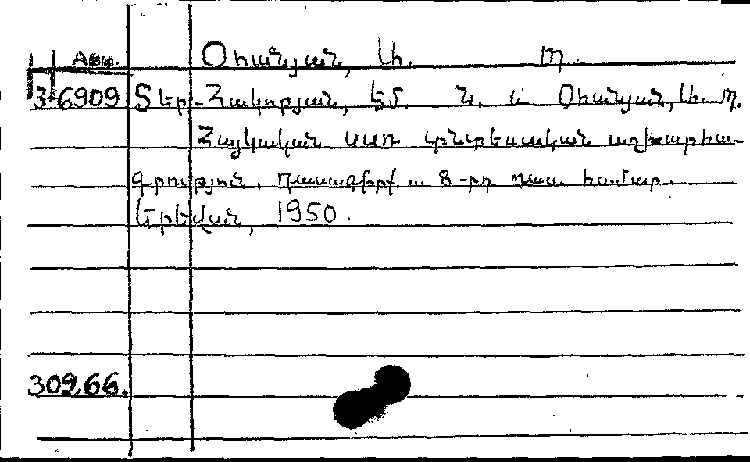 Авт. Օհանյան, Ա. Պ.
3-6909 Տեր-Հակոբյան, Եմ. Ն. և Օհանյան, Ա. Պ.
Հայկական ՍՍՌ տնտեսական աշխարհա-
գրություն. Դասագիրք 8-րդ դաս. համար.
Երևան, 1950.
309,66.